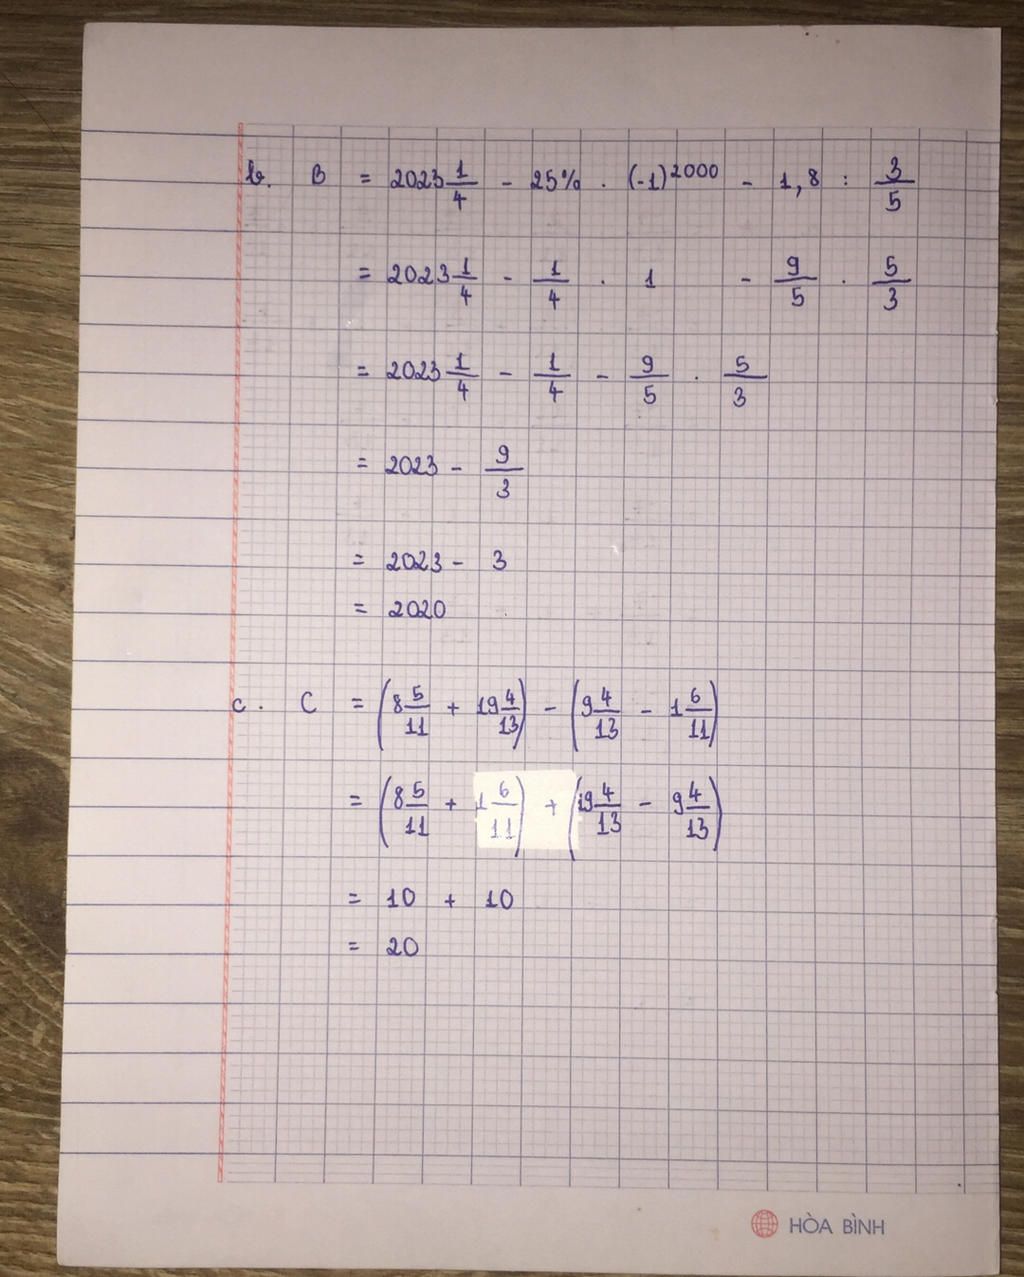 b. B = 2023 1/4 - 25% . (-1)^2000 - 1,8 : 3/5
= 2023 1/4 - 1/4 . 1 - 9/5 . 5/3
= 2023 1/4 - 1/4 - 9/5 . 5/3
= 2023 - 9/3
= 2023 - 3
= 2020
c. C = (8 5/11 + 19 4/13) - (9 4/13 - 1 6/11)
= (8 5/11 + 1 6/11) + (19 4/13 - 9 4/13)
= 10 + 10
= 20
HÒA BÌNH